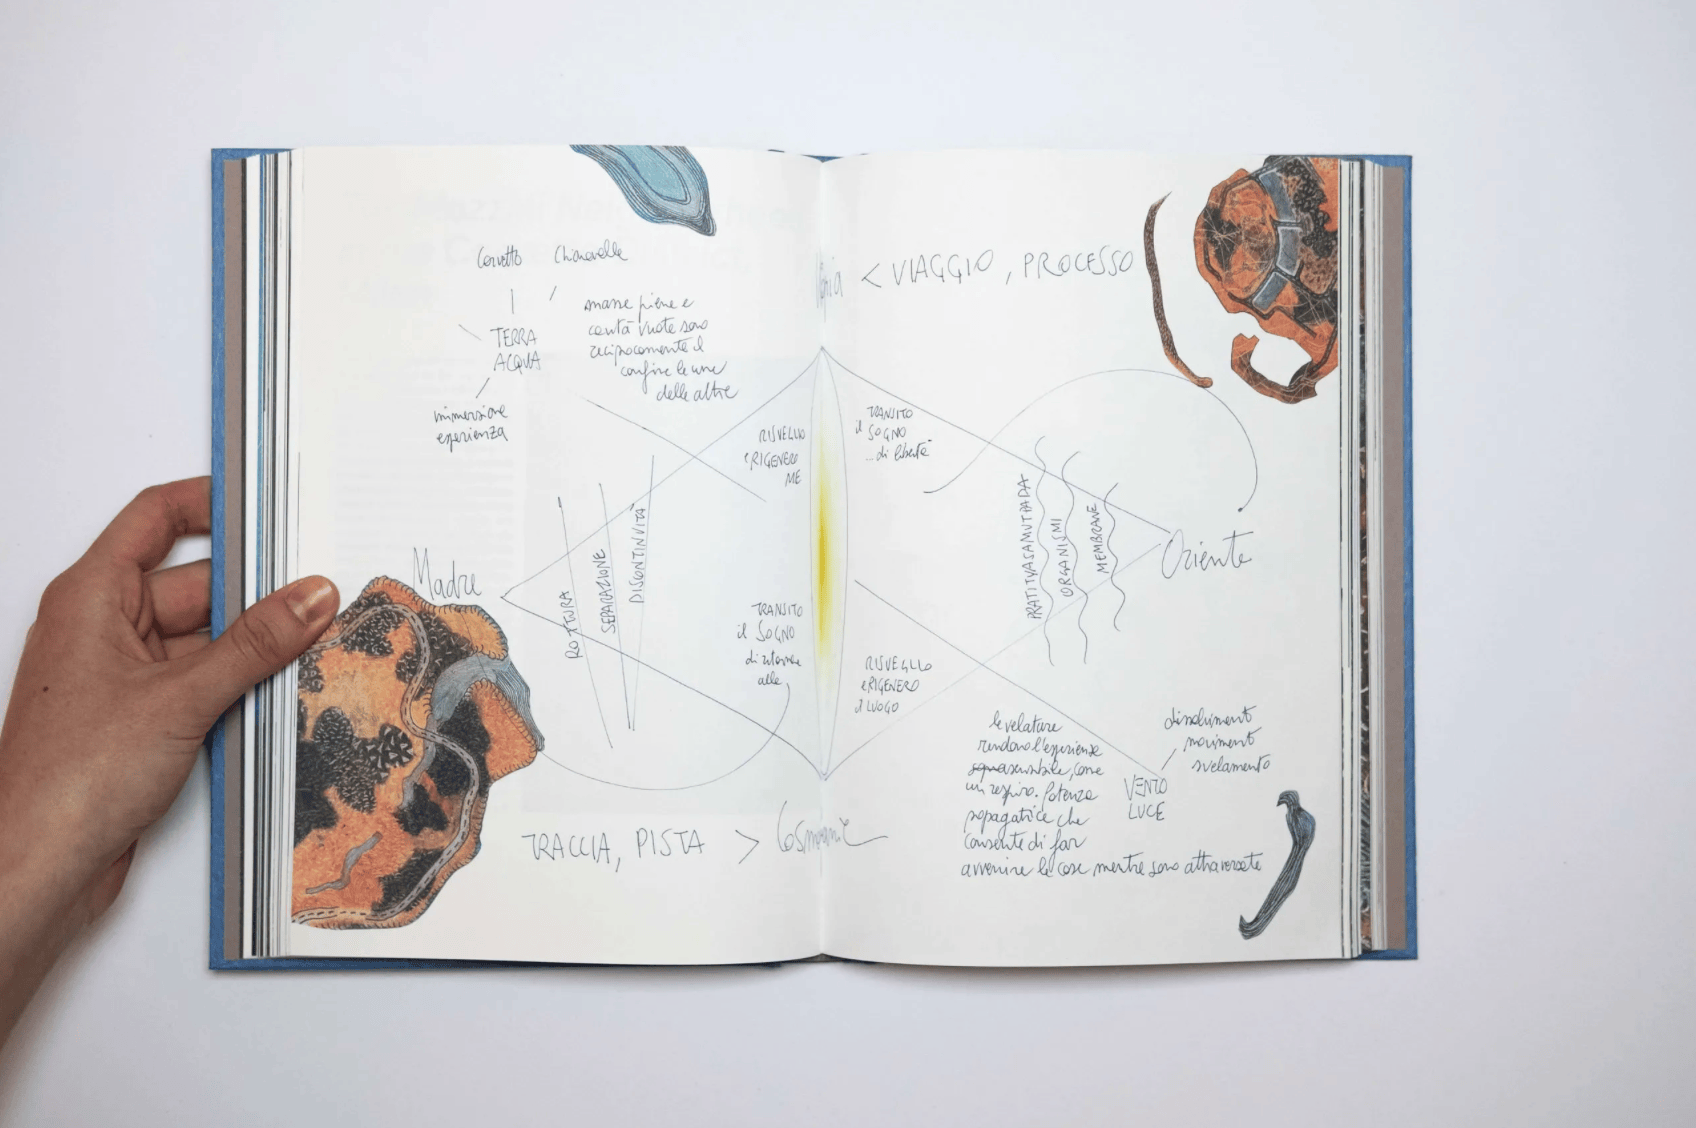 Corvetto Chiaravalle
TERRA
ACQUA
immersione
esperienza
masse piene e
cavità vuote sono
reciprocamente il
confine le une
delle altre
RISVEGLIO
e RIGENERO
ME
Madre
ROTTURA
SEPARAZIONE
DISCONTINUITÀ
TRANSITO
il SOGNO
di ritornare
alle
TRACCIA, PISTA >
< VIAGGIO, PROCESSO
TRANSITO
il SOGNO
... di libertà
PRATITYASAMUTPADA
ORGANISMI
MEMBRANE
Oriente
RISVEGLIO
e RIGENERO
il LUOGO
le velature
rendono l'esperienza
come
un respiro. Potenza
propagatrice che
consente di far
avvenire le cose mentre sono attraversate
VENTO
LUCE
dissolvimenti
movimenti
svelamento